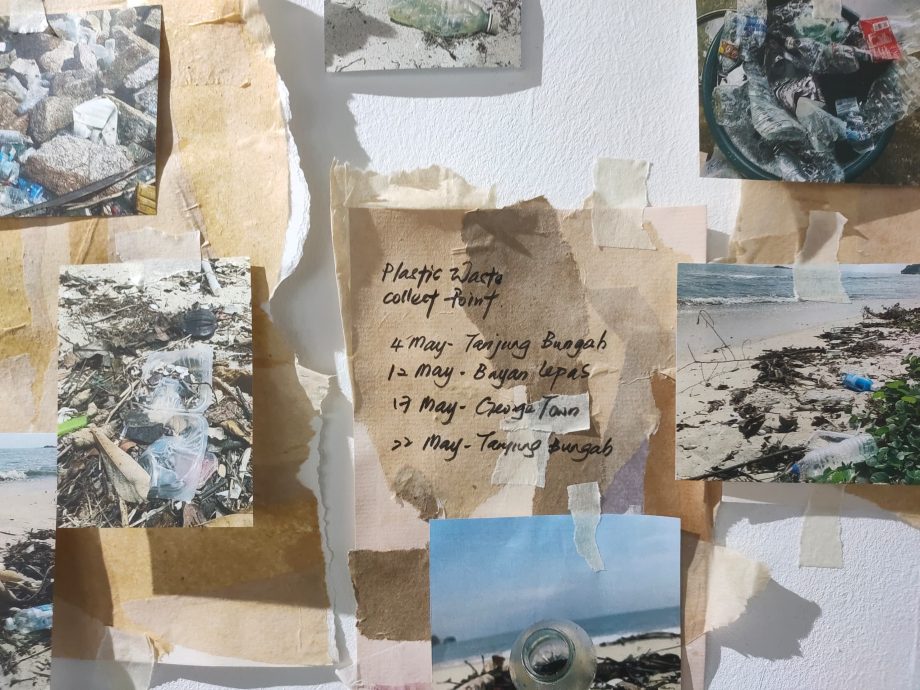 Plastic Waste
collect Point
4 May - Tanjung Bungah
12 May - Bayan Lepas
17 May - George Town
22 May - Tanjung Bungah